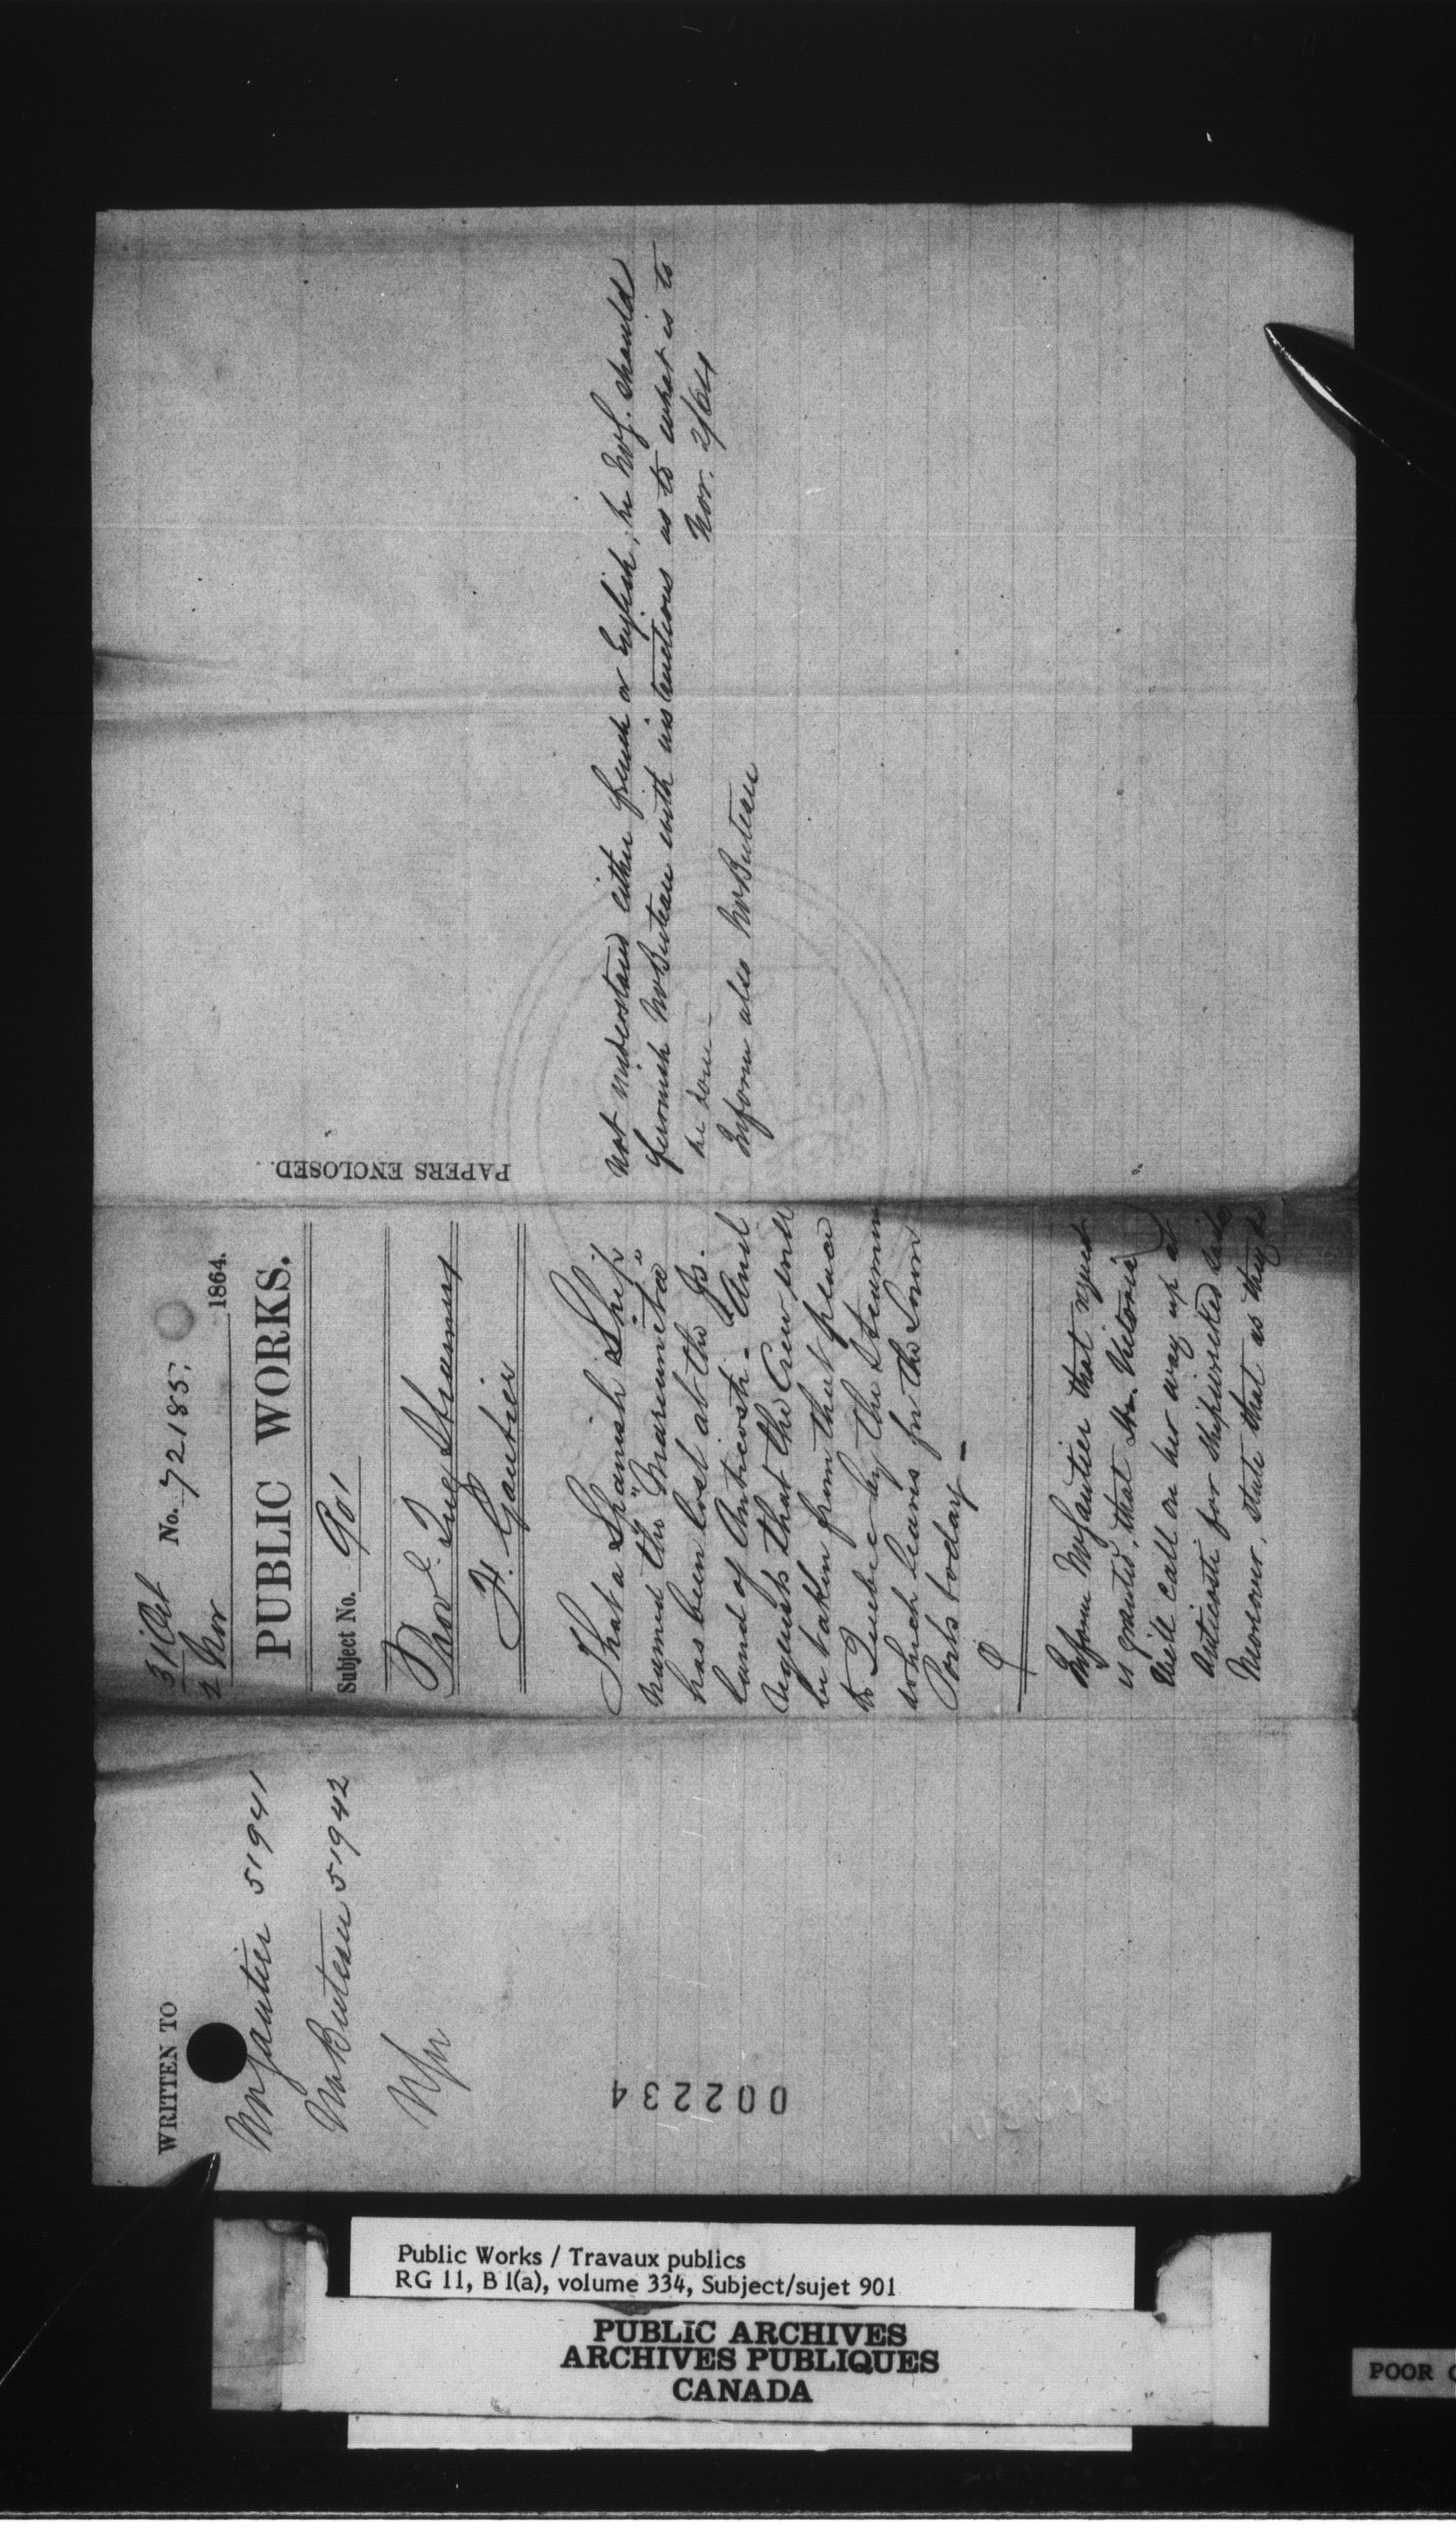 WRITTEN TO
Mr Gautier 51941
Mr Buteau 51942
31 Oct
2 Nov
No. 72185.
1864.
PUBLIC WORKS.
Subject No. 901
Prov. Tug Steamers
F. Gautier
That a Spanish Ship
named the "Marcunita"
has been lost at the Is-
land of Anticosti - And
requests that the Crew will
be taken from that place
to Quebec by the Steamer
which leaves for the Lower
Ports today -
Inform Mr Gautier that request
is granted, that Str. Victoria
will call on her way up at
Anticosti for shipwrecked
Moreover, state that as they do
PAPERS ENCLOSED.
not understand either french or English, he Mr G. should
furnish Mr Buteau with instructions as to what is to
be done -
Nov. 2/64
Inform also Mr Buteau
002234
Public Works / Travaux publics
RG 11, B 1(a), volume 334, Subject/sujet 901
PUBLIC ARCHIVES
ARCHIVES PUBLIQUES
CANADA
POOR